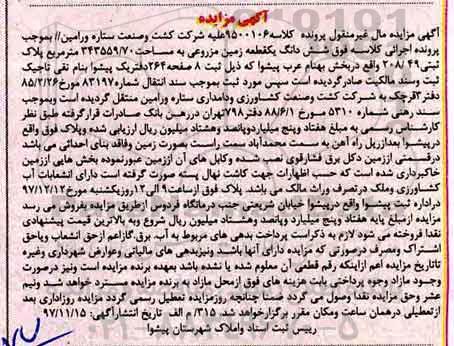 آگهی مزایده
آگهی مزایده مال غیرمنقول پرونده کلاسه ۹۵۰۰۱۰۶ علیه شرکت کشت وصنعت ستاره ورامین// بموجب
پرونده اجرائی کلاسه فوق شش دانگ یکقطعه زمین مزروعی به مساحت ۳۴۳۵۵۹/۷۰ مترمربع پلاک
ثبتی ۲۰۸/۴۹ واقع دربخش بهنام عرب پیشوا که ذیل ثبت ۸ صفحه ۲۶۴ دفتریک پیشوا بنام نقی تاجیک
ثبت وسند مالکیت صادرگردیده است سپس مورد ثبت بموجب سند انتقال شماره ۸۳۱۹۷ مورخ ۸۵/۲/۲۶
دفتر ۳ قرچک به شرکت کشت وصنعت کشاورزی ودامداری ستاره ورامین منتقل گردیده است وبموجب
سند رهنی شماره ۵۳۱۰ مورخ ۸۸/۶/۱ دفتر ۷۹۸ تهران دررهن بانک صادرات قرارگرفته طبق نظر
کارشناس رسمی به مبلغ هفتاد وپنج میلیارد وپانصد وهشتاد میلیون ریال ارزیابی شده وپلاک فوق واقع
درپیشوا بعدازریل راه آهن به سمت محمدآباد سمت راست بصورت زمین وفاقد بنای احداثی می باشد
درقسمتی اززمین دکل برق فشارقوی نصب شده وکابل های آن اززمین عبورنموده بخش هایی اززمین
خاکبرداری شده است که حسب اظهارات جهت کاشت نهال پسته صورت گرفته است دارای انشعابات آب
کشاورزی وملک درتصرف وراث مالک می باشد. پلاک فوق ازساعت ۹ الی ۱۲ روزیکشنبه مورخ ۹۷/۱۲/۱۲
دراداره ثبت پیشوا واقع درپیشوا خیابان شریعتی جنب درمانگاه فردوس ازطریق مزایده بفروش می رسد
مزایده ازمبلغ پایه هفتاد وپنج میلیارد وپانصد وهشتاد میلیون ریال شروع وبه بالاترین قیمت پیشنهادی
نقدا فروخته می شود لازم به ذکراست پرداخت بدهی های مربوط به آب. برق.گازاعم ازحق انشعاب ویاحق
اشتراک ومصرف درصورتی که مزایده دارای آنها باشد ونیزبدهی های مالیاتی وعوارض شهرداری وغیره
تاتاریخ مزایده اعم ازاینکه رقم قطعی آن معلوم شده یا نشده باشد بعهده برنده مزایده است ونیز درصورت
وجود مازاد وجوه پرداختی بابت هزینه های فوق ازمحل مازاد به برنده مزایده مسترد خواهد شد ونیم
عشر وحق مزایده نقدا وصول می گردد ضمنا چنانچه روزمزایده تعطیل رسمی گردد مزایده روزاداری بعد
ازتعطیلی درهمان ساعت ومکان مقرر برگزارخواهد شد. ۳۱۵/ م الف تاریخ انتشارآگهی: ۹۷/۱۱/۱۵
رییس ثبت اسناد واملاک شهرستان پیشوا